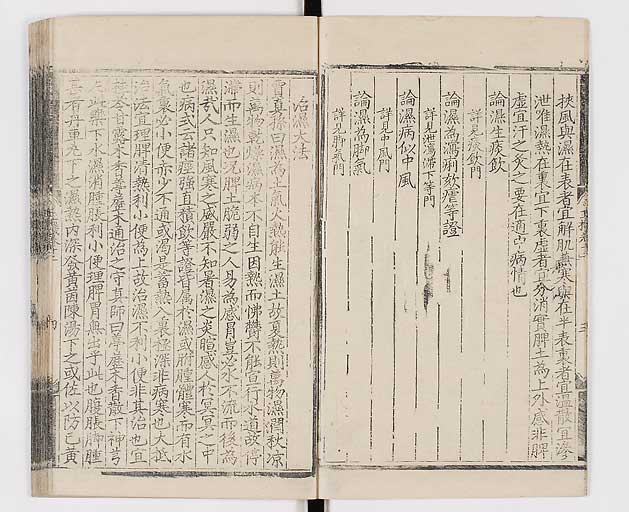 挾風與濕在表者宜解肌兼寒與在半表裏者宜溫散宜滲
泄雖濕熱在裏宜下裏虛者宜分消實脾土為上外感非脾
虛宜汗之灸之要在通病情也
論濕生痰飲
詳見痰飲門
論濕為瀉痢欬瘧等證
詳見泄瀉滯下等門
論濕病似中風
詳見中風門
論濕為脚氣
詳見脚氣門
治濕大法
曰濕為土氣火熱能生濕土故夏熱則萬物濕潤秋凉
則萬物乾燥濕病本不自生因熱而怫欝不能宣行水道故停
滯而生濕也况脾土脆弱之人易為感冐豈必水不流而後為
濕哉人只知風寒之威嚴不知暑濕之炎暄感人於冥冥之中
也病式云諸痙強直積飲等證皆属於濕或胕腫體寒而有水
氣裏必小便赤少不通或渴是蓄熱入裏極深非病寒也大抵
治法宜理脾清熱利小便為上故治濕不利小便非其治也宜
苓甘露木香葶藶木通治之守真師曰葶藶木香散下神芎
此藥下水濕消腫脹利小便理脾胃無出乎此也腹脹脚腫
甚有丹下之濕熱内深發黄茵陳湯下之或佐以防已黄